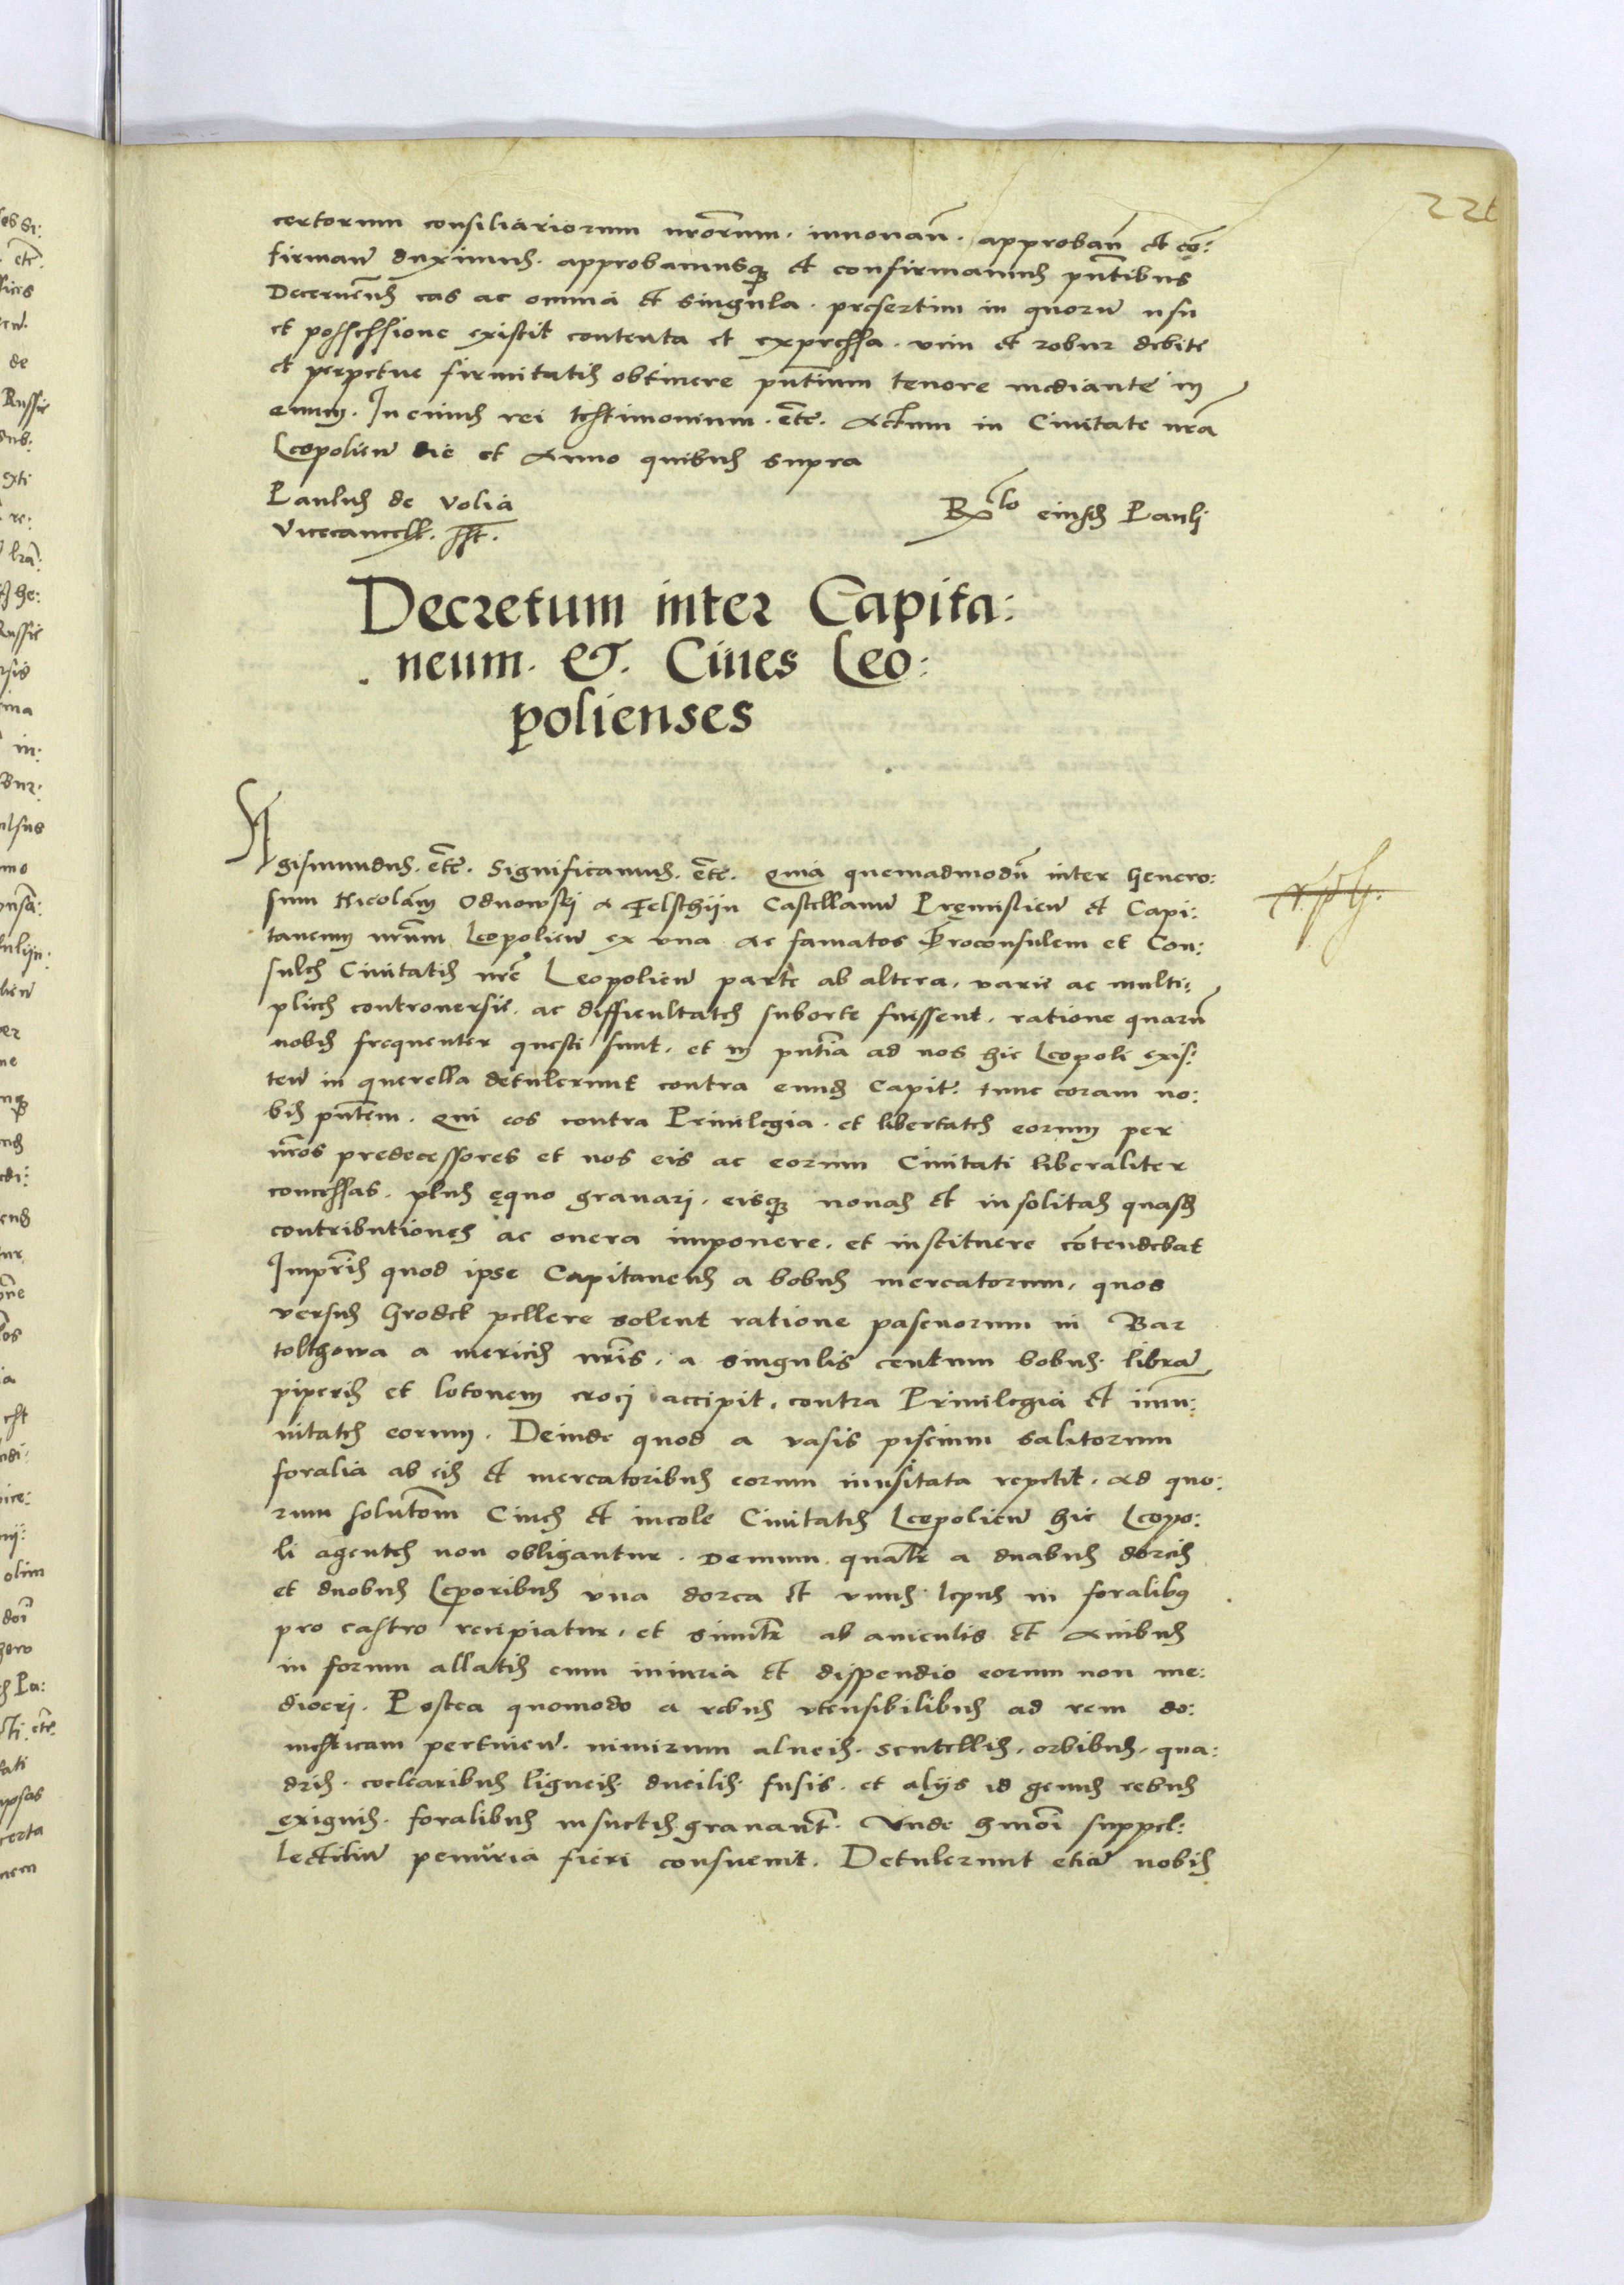 221
certorum consiliariorum nrōrum. innouan̄. approban̄ et cō:
firman̄ duximus. approbamusq; et confirmamus pn̄tibus
Decernen̄s eas ac omnia et singula. presertim in quoru̅ usu
et possessione existit contenta et expressa. vim et robur debite
et perpetue firmitatis obtinere pn̄tium tenore mediante in
euum. In cuius rei testimonium. etc̄. Actum in Ciuitate nr̄a
Leopolien̄ die et Anno quibus supra
Paulus de Volia
Vicecancell. sst.
Rlo eiusd Pauli
Decretum inter Capita:
neum. &. Ciues Leo:
polienses
Sigismundus. etc̄. Significamus. etc̄. Quia quemadmodu̅ inter Genero:
sum Nicolau̅ Odnowski a Felschtijn Castellanu̅ Pręmislien̄ et Capi:
taneum nr̄um Leopolien̄ ex vna ac famatos Proconsulem et Con:
sules Ciuitatis nrē Leopolien̄ parte ab altera, varie ac multi:
plices controuersie. ac difficultates suborte fuissent. ratione quaru̅
nobis frequenter questi sunt. et in pn̄tia ad nos hic Leopoli exis:
ten̄ in querella detulerunt contra eund Capit. tunc coram no:
bis pn̄tem. Qui eos contra Priuilegia. et libertates eorum per
nr̄os predecessores et nos eis ac eorum Ciuitati liberaliter
concessas. plus ęquo grauari. eisq; nouas et insolitas quasd
contributiones ac onera imponere. et instituere cōtendebat
Impri̅s quod ipse Capitaneus a bobus mercatorum, quos
versus Grodek pellere solent ratione pascuorum in Bar
tolthowa a mericis nr̄is, a singulis centum bobus. libra̅
piperis et lotonem croci accipit, contra Priuilegia et im̄u:
nitates eorum. Deinde quod a vasis piscium salitorum
foralia ab eis et mercatoribus eorum inusitata repetit. Ad quo:
rum soluto̅m Ciues et incole Ciuitatis Leopolien̄ hic Leopo:
li agentes non obligantur. Demum. qualr̄ a duabus dorcis
et duobus Leporibus vna dorca et vnus lepus in foralibus
pro castro recipiatur. et similr̄ ab auiculis et Auibus
in forum allatis cum iniuria et dispendio eorum non me:
diocri. Postea quomodo a rebus vtensibilibus ad rem do:
mesticam pertinen̄. nimirum alueis. scutellis. orbibus. qua:
dris. coclearibus ligneis. ducilis. fusis. et alijs id genus rebus
exiguis. foralibus insuetis grauant. Vnde hmōi suppel:
lectiliu̅ penuria fieri consueuit. Detulerunt etia̅ nobis